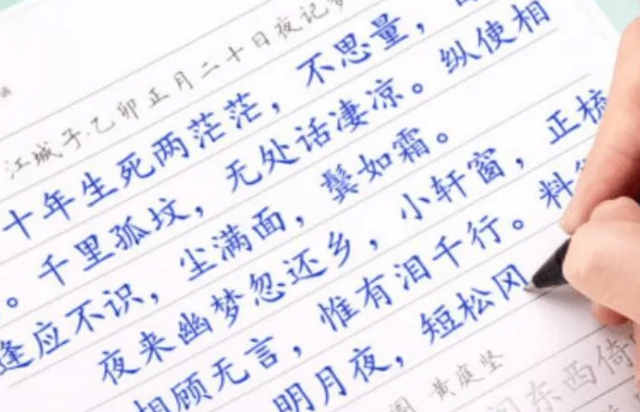 江城子·乙卯正月二十日夜记梦
十年生死两茫茫，不思量，
千里孤坟，无处话凄凉。纵使相
逢应不识，尘满面，鬓如霜。
夜来幽梦忽还乡，小轩窗，正梳
相顾无言，惟有泪千行。料
明月夜，短松冈
黄庭坚
东西倚